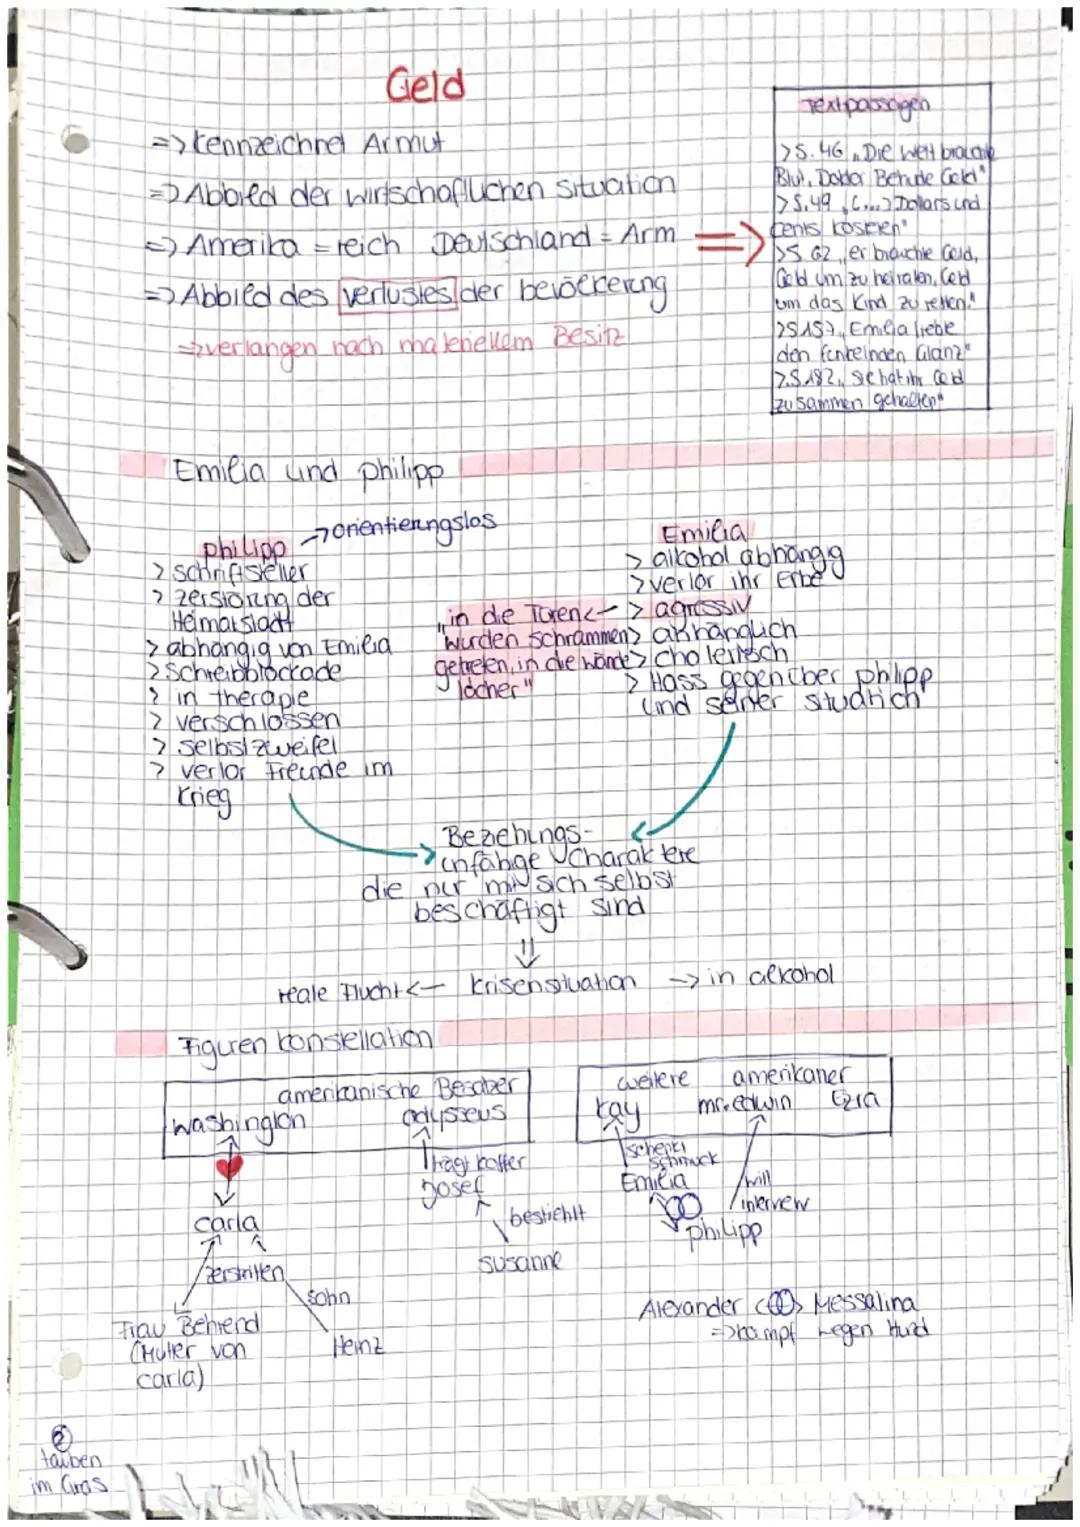 Geld
=> kennzeichnet Armut
=> Abbild der wirtschaftlichen situation
=> Amerika = reich Deutschland = Arm =>
=> Abbild des verlustes der bevölkerung
=> verlangen nach materiellem Besitz
Textpassagen
> S. 46 „Die Welt brauchte
Blut, Doktor Behude Geld"
> S. 49 „(...) Dollars und
cents kosten"
> S. 62 „er brauchte Geld,
Geld um zu heiraten, Geld
um das Kind zu retten."
> S. 157 „Emilia liebte
den funkelnden Glanz"
> S. 182 „Sie hat ihr Geld
zusammen gehalten"
Emilia und philipp
philipp -> orientierungslos
> schriftsteller
> zerstörung der
Heimatstadt
> abhängig von Emilia
> Schreibblockade
> in therapie
> verschlossen
> selbstzweifel
> verlor Freunde im
Krieg
Emilia
> alkohol abhängig
> verlor ihr Erbe
> agressiv
> anhänglich
> cholerisch
> Hass gegenüber philipp
und seiner situation
„in die Türen <-
wurden schrammen
getreten, in die wände
löcher"
Beziehungs-
unfähige Charaktere
die nur mit sich selbst
beschäftigt sind
reale Flucht <- Krisensituation -> in alkohol
Figuren konstellation
amerikanische Besatzer
washington odysseus
weitere amerikaner
kay mr. edwin Ezra
trägt koffer
Josef
bestiehlt
susanne
schenkt
schmuck
Emilia
will
interview
philipp
carla
zerstritten
sohn
Frau Behrend
(Mutter von
carla)
Heinz
Alexander Messalina
=> kampf wegen Hund
②
tauben
im Gras